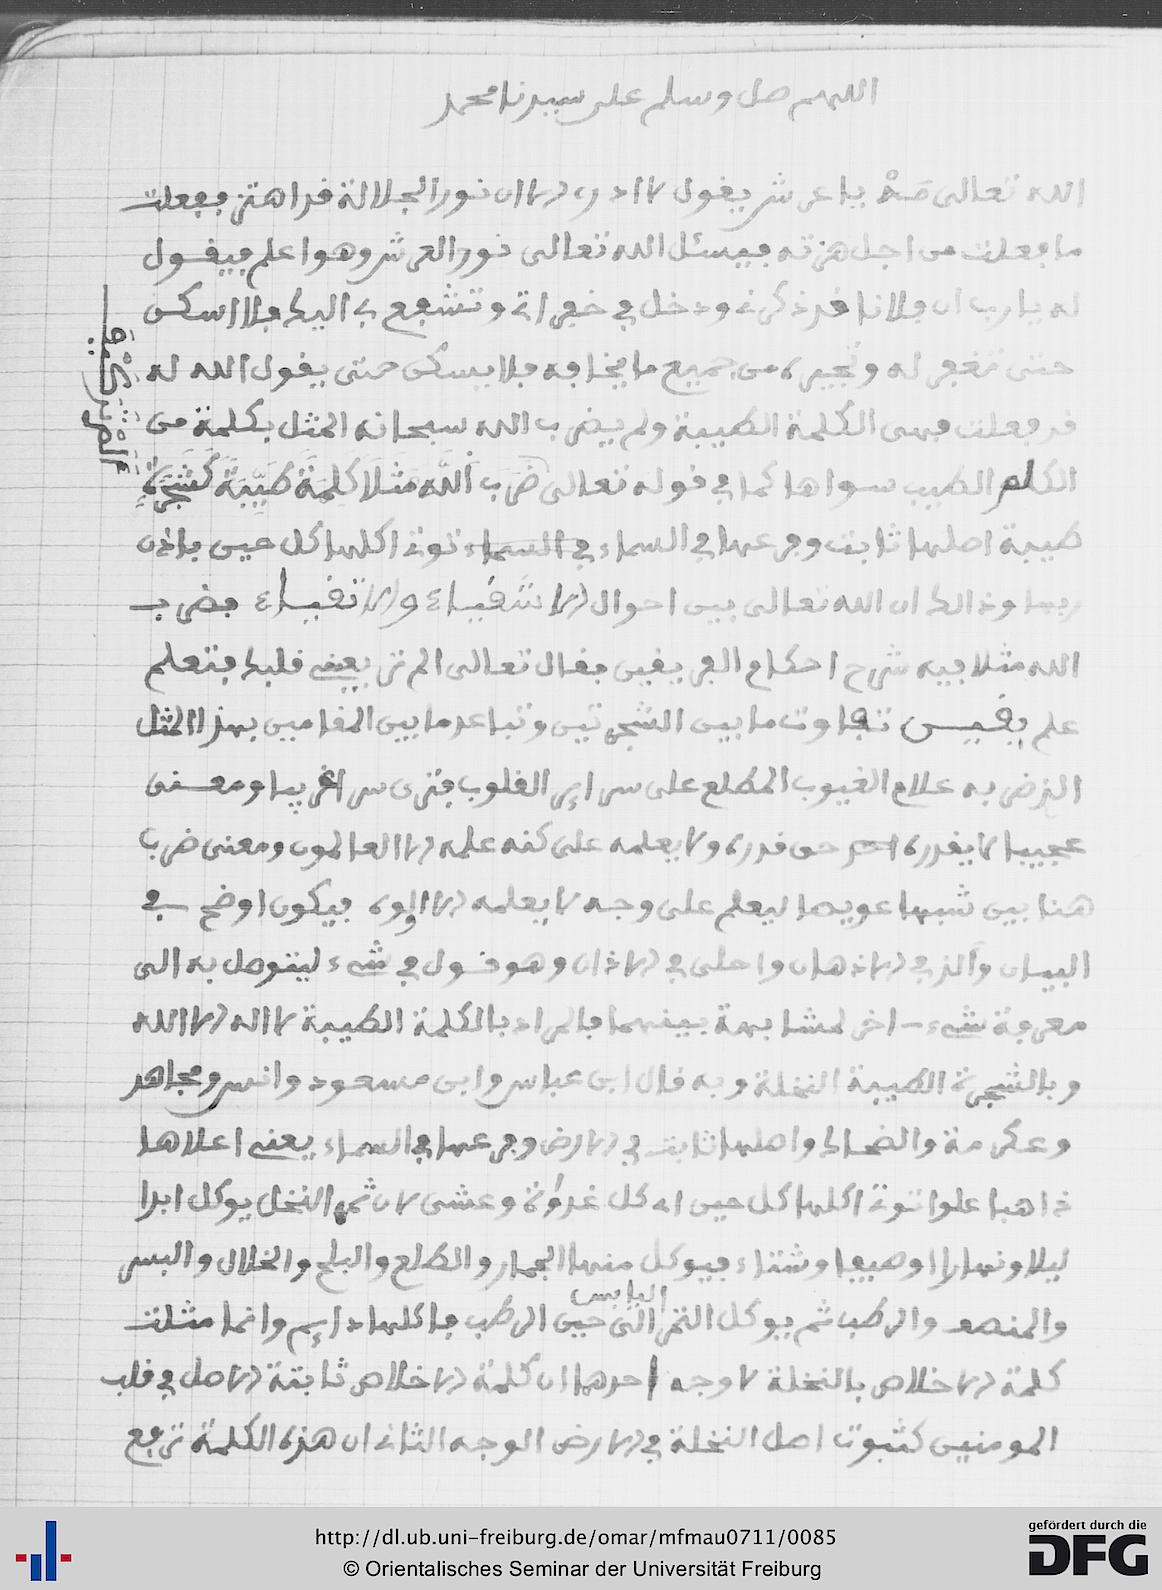 اللهم صل وسلم على سيدنا محمد
الله تعالى مه يا عرش يقول لا ادري الا ان نور الجلالة قد اهتز بفعلت
ما فعلت من اجل هزته فيسئل الله تعالى نور العرش وهو اعلم فيقول
له يا رب ان فلانا قد ذكرني ودخل في خفراتي وتشفع بي اليك فلا اسكن
حتى تغفر له وتجيره من جميع ما يخافه فلا يسكن حتى يقول الله له
قد فعلت فهى الكلمة الطيبة ولم يضرب الله سبحانه المثل بكلمة من
الكلم الطيب سواها كما في قوله تعالى ضَرَبَ اللَّهُ مَثَلًا كَلِمَةً طَيِّبَةً كَشَجَرَةٍ
طيبة اصلها ثابت وفرعها في السماء في السماء توتي اكلها كل حين باذن
ربها وذالك ان الله تعالى بين احوال الاشقياء والاتقياء فضرب
الله مثلا فيه شرح احكام الفريقين فقال تعالى الم تر يعني قلبك فتعلم
علم يقين تفاوت ما بين الشجرتين وتباعد ما بين المقامين بهذا المثل
الذي ضربه علام الغيوب المطلع على سراير القلوب فترى سرا غريبا ومعنى
عجيبا لا يقدره احد حق قدره ولا يعلمه على كنه علمه الا العالمون ومعنى ضرب
هنا بين شبها عويصا ليعلم على وجه لا يعلمه الا الوه فيكون اوضح في
البيان والذ في الاذهان واحلى في الاذان وهو قول في شيء ليتوصل به الى
معرفة شيء اخر لمشابهة بينهما فالمراد بالكلمة الطيبة لا اله الا الله
وبالشجرة الطيبة النخلة وبه قال ابن عباس وابن مسعود وانس ومجاهد
وعكرمة والضحاك واصلها ثابت في الارض وفرعها في السماء يعني اعلاها
ذاهبا علوا توتي اكلها كل حين اي كل غدوة وعشى لان ثمر النخل يوكل ابدا
ليلا ونهارا وصيفا وشتاء فيوكل منها الجمار والطلع والبلح والخلال والبسر
والمنصف والرطب ثم يوكل التمر اليابس الى حين الرطب فاكلها دايم وانما مثلت
كلمة الاخلاص بالنخلة لاوجه احدها ان كلمة الاخلاص ثابتة الاصل في قلب
المومنين كثبوت اصل النخلة في الارض الوجه الثاني ان هذه الكلمة ترفع
http://dl.ub.uni-freiburg.de/omar/mfmau0711/0085
© Orientalisches Seminar der Universität Freiburg
gefördert durch die
DFG